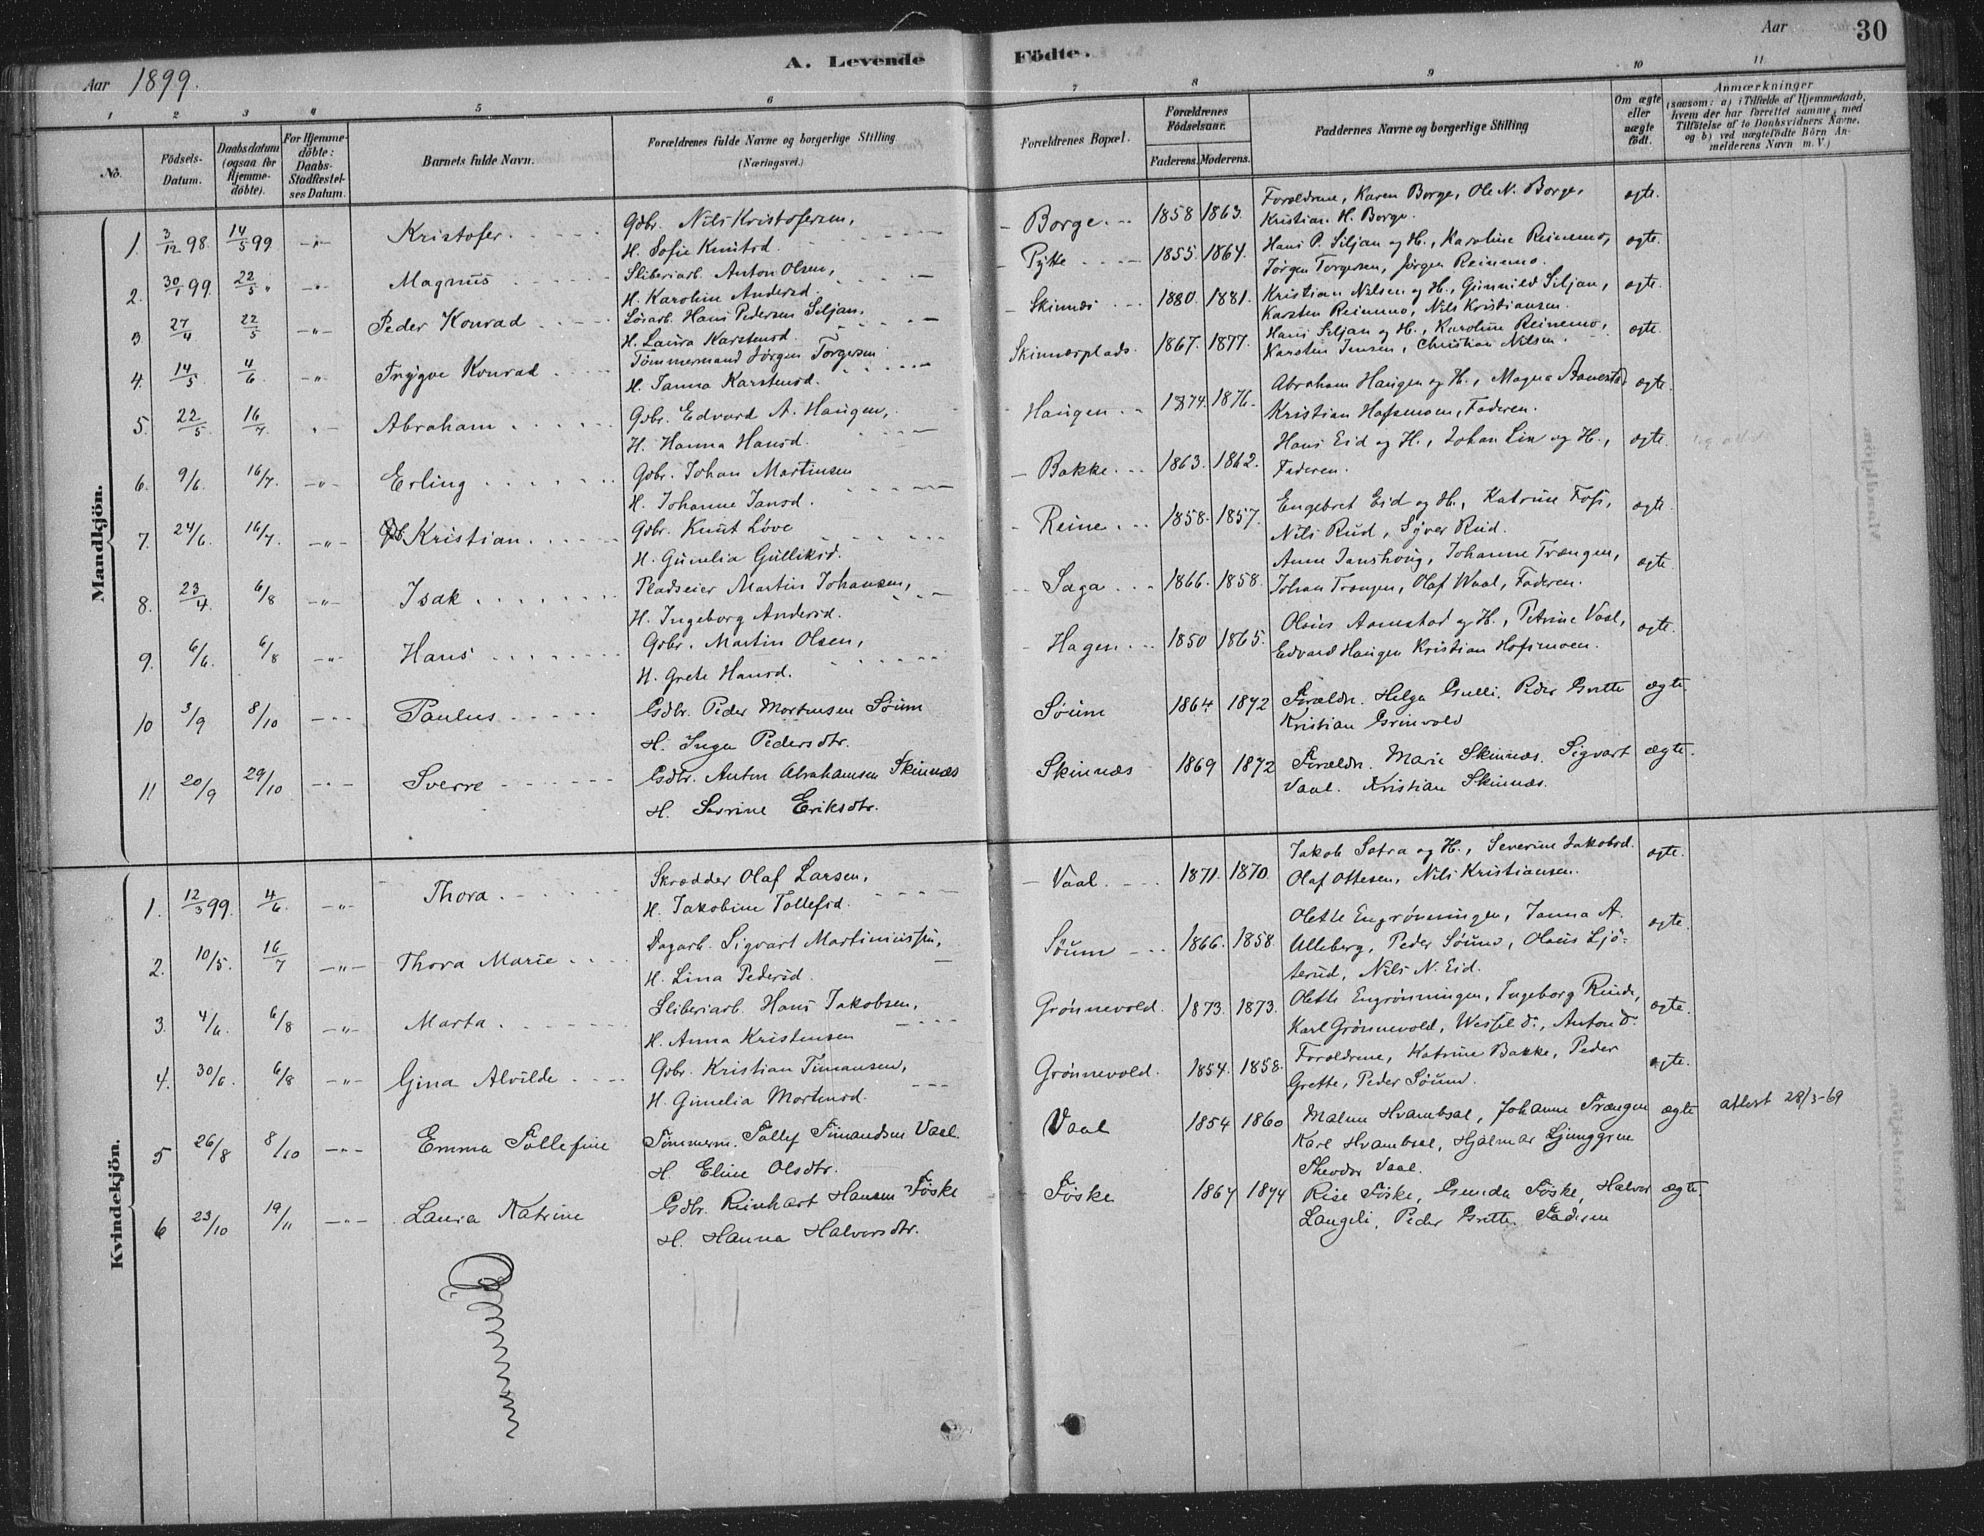 Aar 1899.
A. Levende Födte.
Aar
30
1 2 3 4 5 6 7 8 9 10 11
No.
Födsels-Datum.
Daabsdatum (ogsaa for Hjemmedöbte).
For Hjemmedöbte: Daabs-Stadfæstelses Datum.
Barnets fulde Navn.
Forældrenes fulde Navne og borgerlige Stilling
(Næringsvei.)
Forældrenes Bopæl.
Forældrenes Födselsaar.
Faderens. Moderens.
Faddernes Navne og borgerlige Stilling
Om ægte eller uægte födt.
Anmærkninger
(saasom: a) i Tilfælde af Hjemmedaab, hvem der har forrettet samme, med Tilföielse af to Daabsvidners Navne, og b) ved uægtefödte Börn Anmelderens Navn m. V.)
Mandkjön.
1. 3/12 98. 14/5 99 -"- Kristofer. Gdbr. Nils Kristofersen, Borge. 1858 1863. Foroldrene, Karen Borge, Ole N. Borge, ogte.
H. Sofie Knutsd. Kristian H. Borge.
2. 30/1 99. 22/5 " -"- Magnus Sliberiarb. Anton Olsen, Pytte 1855. 1864. Hans P. Siljan og H., Karoline Reinemo, ogte.
H. Karoline Andersd. Jörgen Torgersen, Jörgen Reinemo.
3 27/4 22/5 -"- Peder Konrad Lösarb. Hans Pedersen Siljan, Skinnes 1880. 1881. Kristian Nilsen og H., Gunnild Siljan, ogte.
H. Laura Karstensd. Karsten Reinemo, Nils Kristiansen.
4. 14/5 4/6 -"- Trygve Konrad Tömmermand Jörgen Torgersen Skinnesplads. 1867. 1877. Hans Siljan og H., Karoline Reinemo, ogte.
H. Janna Karstensd. Karsten Jensen, Christian Nilsen.
5. 22/5. 16/7. -"- Abraham Gdbr. Edvard A. Haugen, Haugen 1874. 1876. Abraham Haugen og H., Magna Aanestad ogte.
H. Hanna Hansd. Kristian Hofsmoen, Faderen.
6. 9/6. 16/7. -"- Erling Gdbr. Johan Martinsen Bakke 1863. 1862. Hans Eid og H., Johan Lia og H., ogte.
H. Johanne Jansd. Faderen.
7. 24/6. 16/7. -"- Kristian. Gdbr. Knut Löve Reine 1858. 1857. Engebret Eid og H., Katrine Foss, ogte.
H. Gunelia Gulliksd. Nils Rud, Syver Rud.
8. 23/4. 6/8 -"- Isak Pladseier Martin Johansen, Saga 1866. 1858. Anne Janshoug, Johanne Trængen, ogte.
H. Ingeborg Andersd. Johan Trængen, Olaf Waal, Faderen.
9. 6/6. 6/8 -"- Hans Gdbr. Martin Olsen, Hagen 1850 1865. Olaus Aanestad og H., Petrine Vaal, ogte.
H. Grete Hansd. Edvard Haugen Kristian Hofsmoen.
10 3/9 8/10 -"- Paulus Gdbr. Peder Mortensen Söum Söum 1864 1872 Foreldr. Helga Gulli. Peder Grette ægte.
H. Inga Pedersdtr. Kristian Grinvold
11 20/9 29/10 -"- Sverre Gdbr. Anton Abrahamsen Skinnæs Skinnæs 1869 1872 Foreldr. Marie Skinnæs. Sigvart ægte.
H. Serine Eriksdtr. Vaal. Kristian Skinnæs.
Kvindekjön.
1. 12/3 99. 4/6. -"- Thora. Skrædder Olaf Larsen, Vaal. 1871. 1870. Jakob Satra og H., Severine Jakobsd. ogte.
H. Jakobine Tollefsd. Olaf Ottesen, Nils Kristiansen.
2. 10/5. 16/7 -"- Thora Marie Dagarb. Sigvart Martiniussen, Söum 1866. 1858. Olette Engrönningen, Janna A. ogte.
H. Lina Pedersd. Ulleberg, Peder Söum, Olaus Ljö-
terud, Nils N. Eid.
3. 4/6. 6/8 -"- Marta. Sliberiarb. Hans Jakobsen, Grönnevold. 1873. 1873. Olette Engrönningen, Ingeborg Rinde, ogte.
H. Anna Kristensen Karl Grönnevold, Wessel do., Anton do.
4. 30/6. 6/8 -"- Gina Alvilde Gdbr. Kristian Timansen, Grönnevold. 1854. 1858. Foroldrene, Katrine Bakke, Peder ogte.
H. Gunelia Mortensd. Grette, Peder Söum.
5 26/8 8/10 -"- Emma Tollefine Tömmerm. Tollef Timandsen Vaal. Vaal 1854 1860 Malene Hvambsal, Johanne Trængen ægte attest 28/3-69
H. Eline Olsdtr. Karl Hvambsal, Hjalmar Ljunggren
Theodor Vaal.
6 23/10 19/11 -"- Laura Katrine Gdbr. Reinhart Hansen Föske Föske 1867 1874 Rise Föske, Gunda Föske, Halvor ægte
H. Hanna Halvorsdtr. Langeli, Peder Grette Faderen